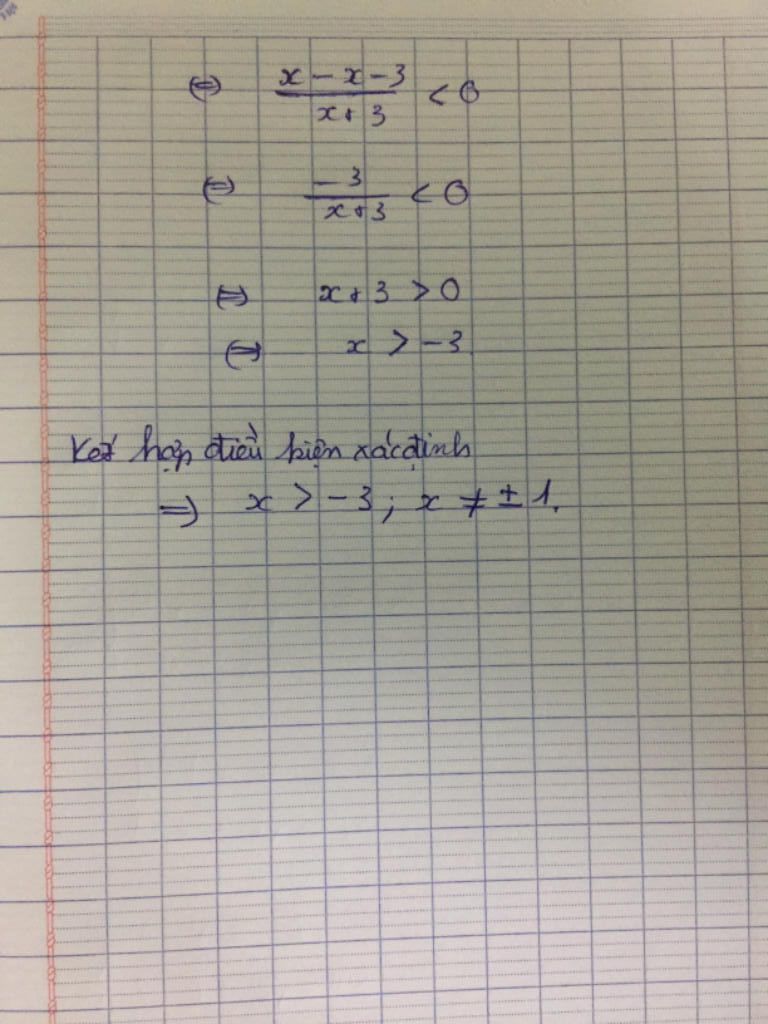 ⇔ x - x - 3 / x + 3 < 0
⇔ -3 / x + 3 < 0
⇔ x + 3 > 0
⇔ x > -3
Kết hợp điều kiện xác định
⇒ x > -3; x ≠ ± 1.